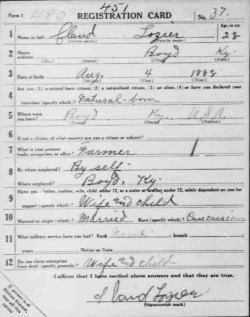 451
Form 1 483 REGISTRATION CARD No. 37
1 Name in full Claud Lozier Age, in yrs. 28
2 Home address Boyd Ky.
3 Date of birth Aug. 4 1888
4 Are you (1) a natural-born citizen, (2) a naturalized citizen, (3) an alien, (4) or have you declared your
intention (specify which)? Natural-born
5 Where were you born? Boyd Ky. U.S.A
6 If not a citizen, of what country are you a citizen or subject?
7 What is your present trade, occupation, or office? Farmer 1
8 By whom employed? By self
Where employed? Boyd, Ky
9 Have you a father, mother, wife, child under 12, or a sister or brother under 12, solely dependent on you for
support (specify which)? Wife and child
10 Married or single (which)? Married Race (specify which)? Caucasian
11 What military service have you had? Rank None branch
years Nation or State
12 Do you claim exemption from draft (specify grounds)? Wife and child
I affirm that I have verified above answers and that they are true.
Claud Lozier
(Signature or mark)